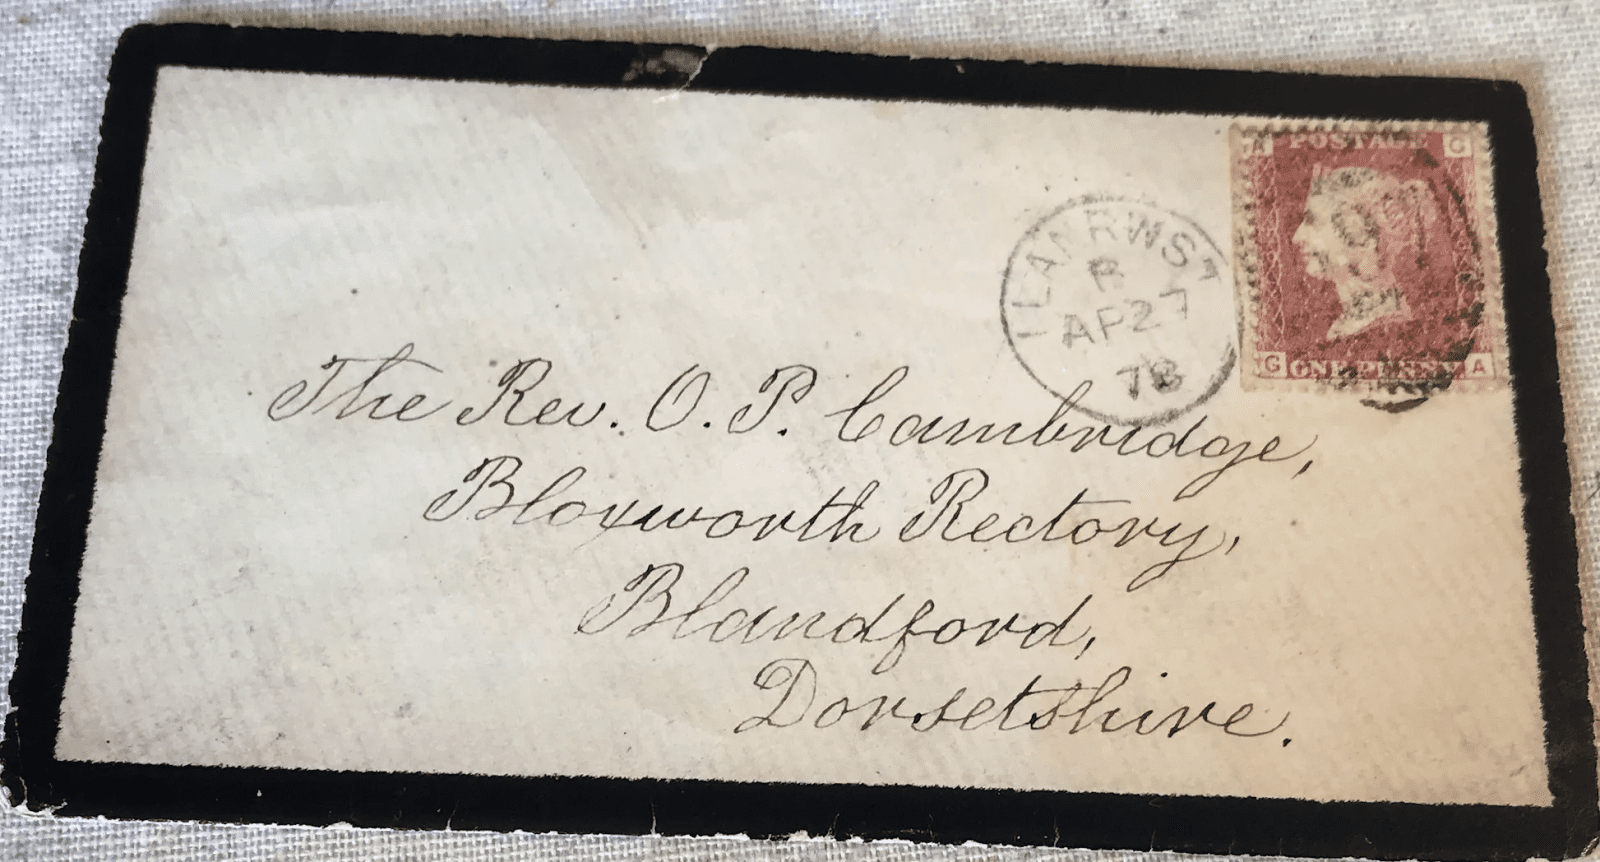 POSTAGE
A G
LLANRWST
B
AP 27
78
G ONE PENNY A
The Rev. O. P. Cambridge,
Bloxworth Rectory,
Blandford,
Dorsetshire.